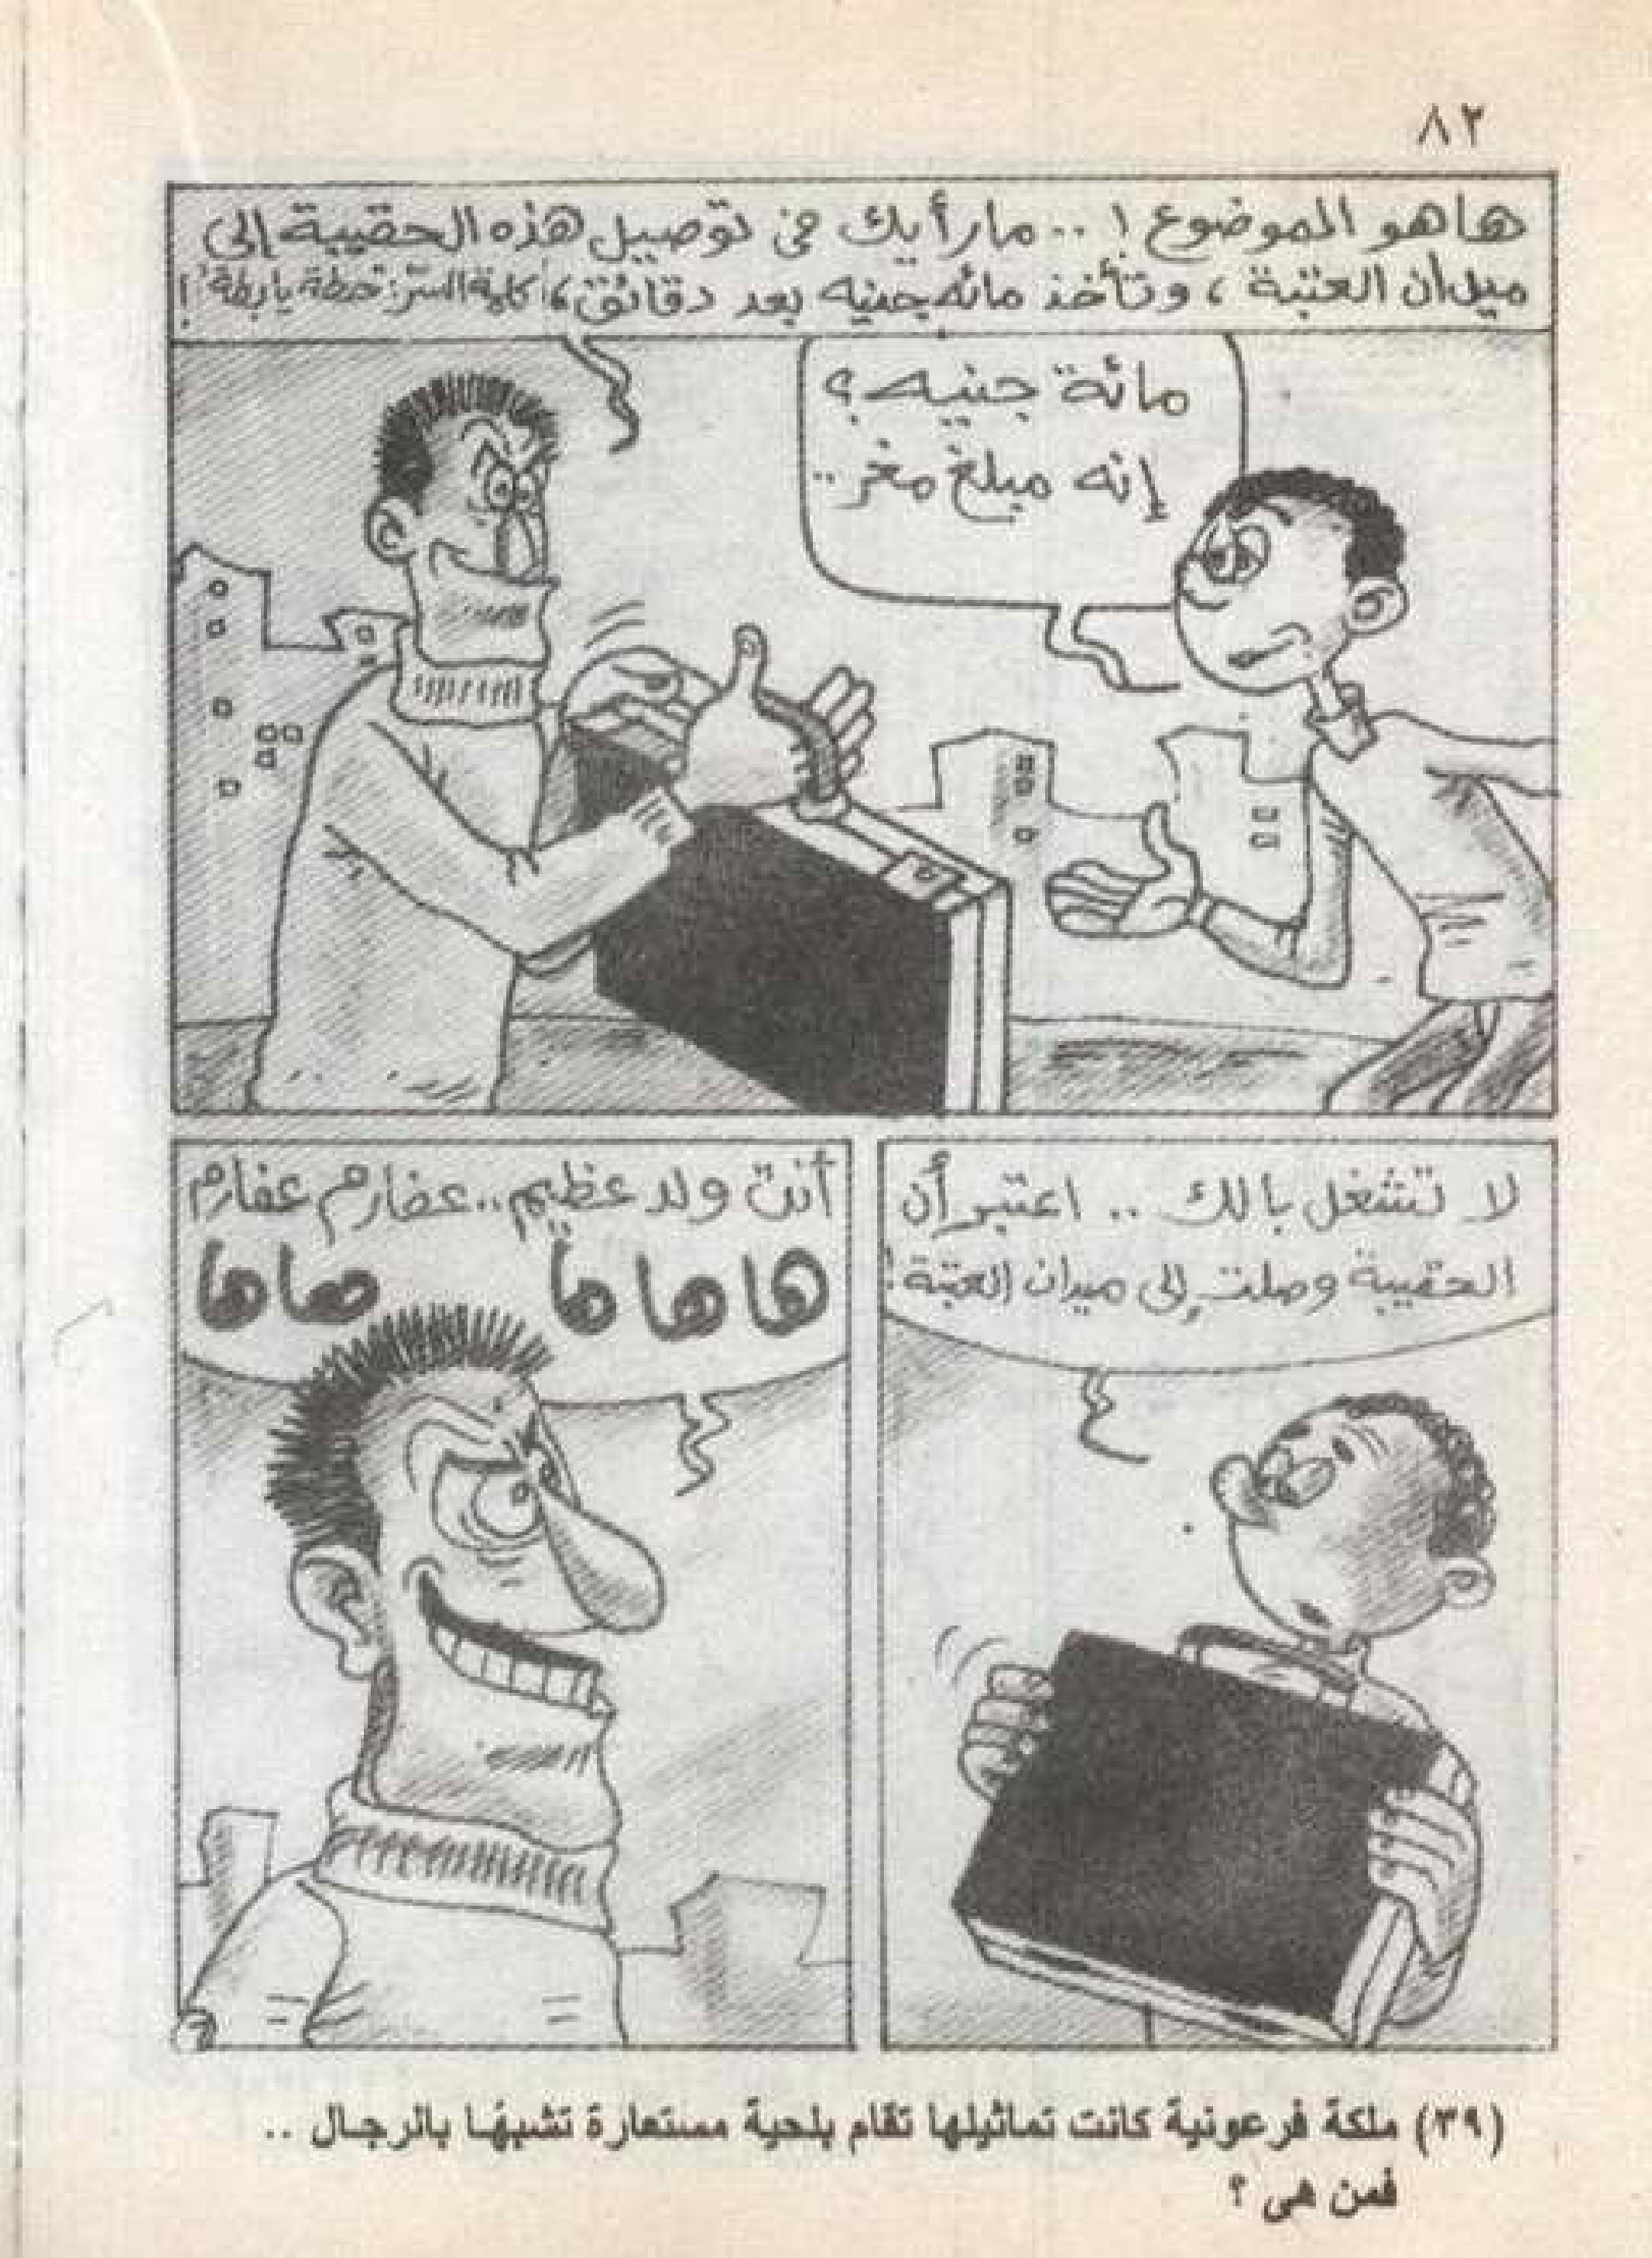 ٨٢
هاهو الموضوع ! .. مارأيك في توصيل هذه الحقيبة إلى
ميدان العتبة ، وتأخذ مائه جنيه بعد دقائق، "كلمة السر: خطة يا بطة" !
مائة جنيه ؟
إنه مبلغ مغر ..
لا تشغل بالك .. اعتبر أن
الحقيبة وصلت إلى ميدان العتبة !
أنت ولد عظيم .. عفارم عفارم
هاهاها هاها
(٣٩) ملكة فرعونية كانت تماثيلها تقام بلحية مستعارة تشبهًا بالرجال ..
فمن هى ؟